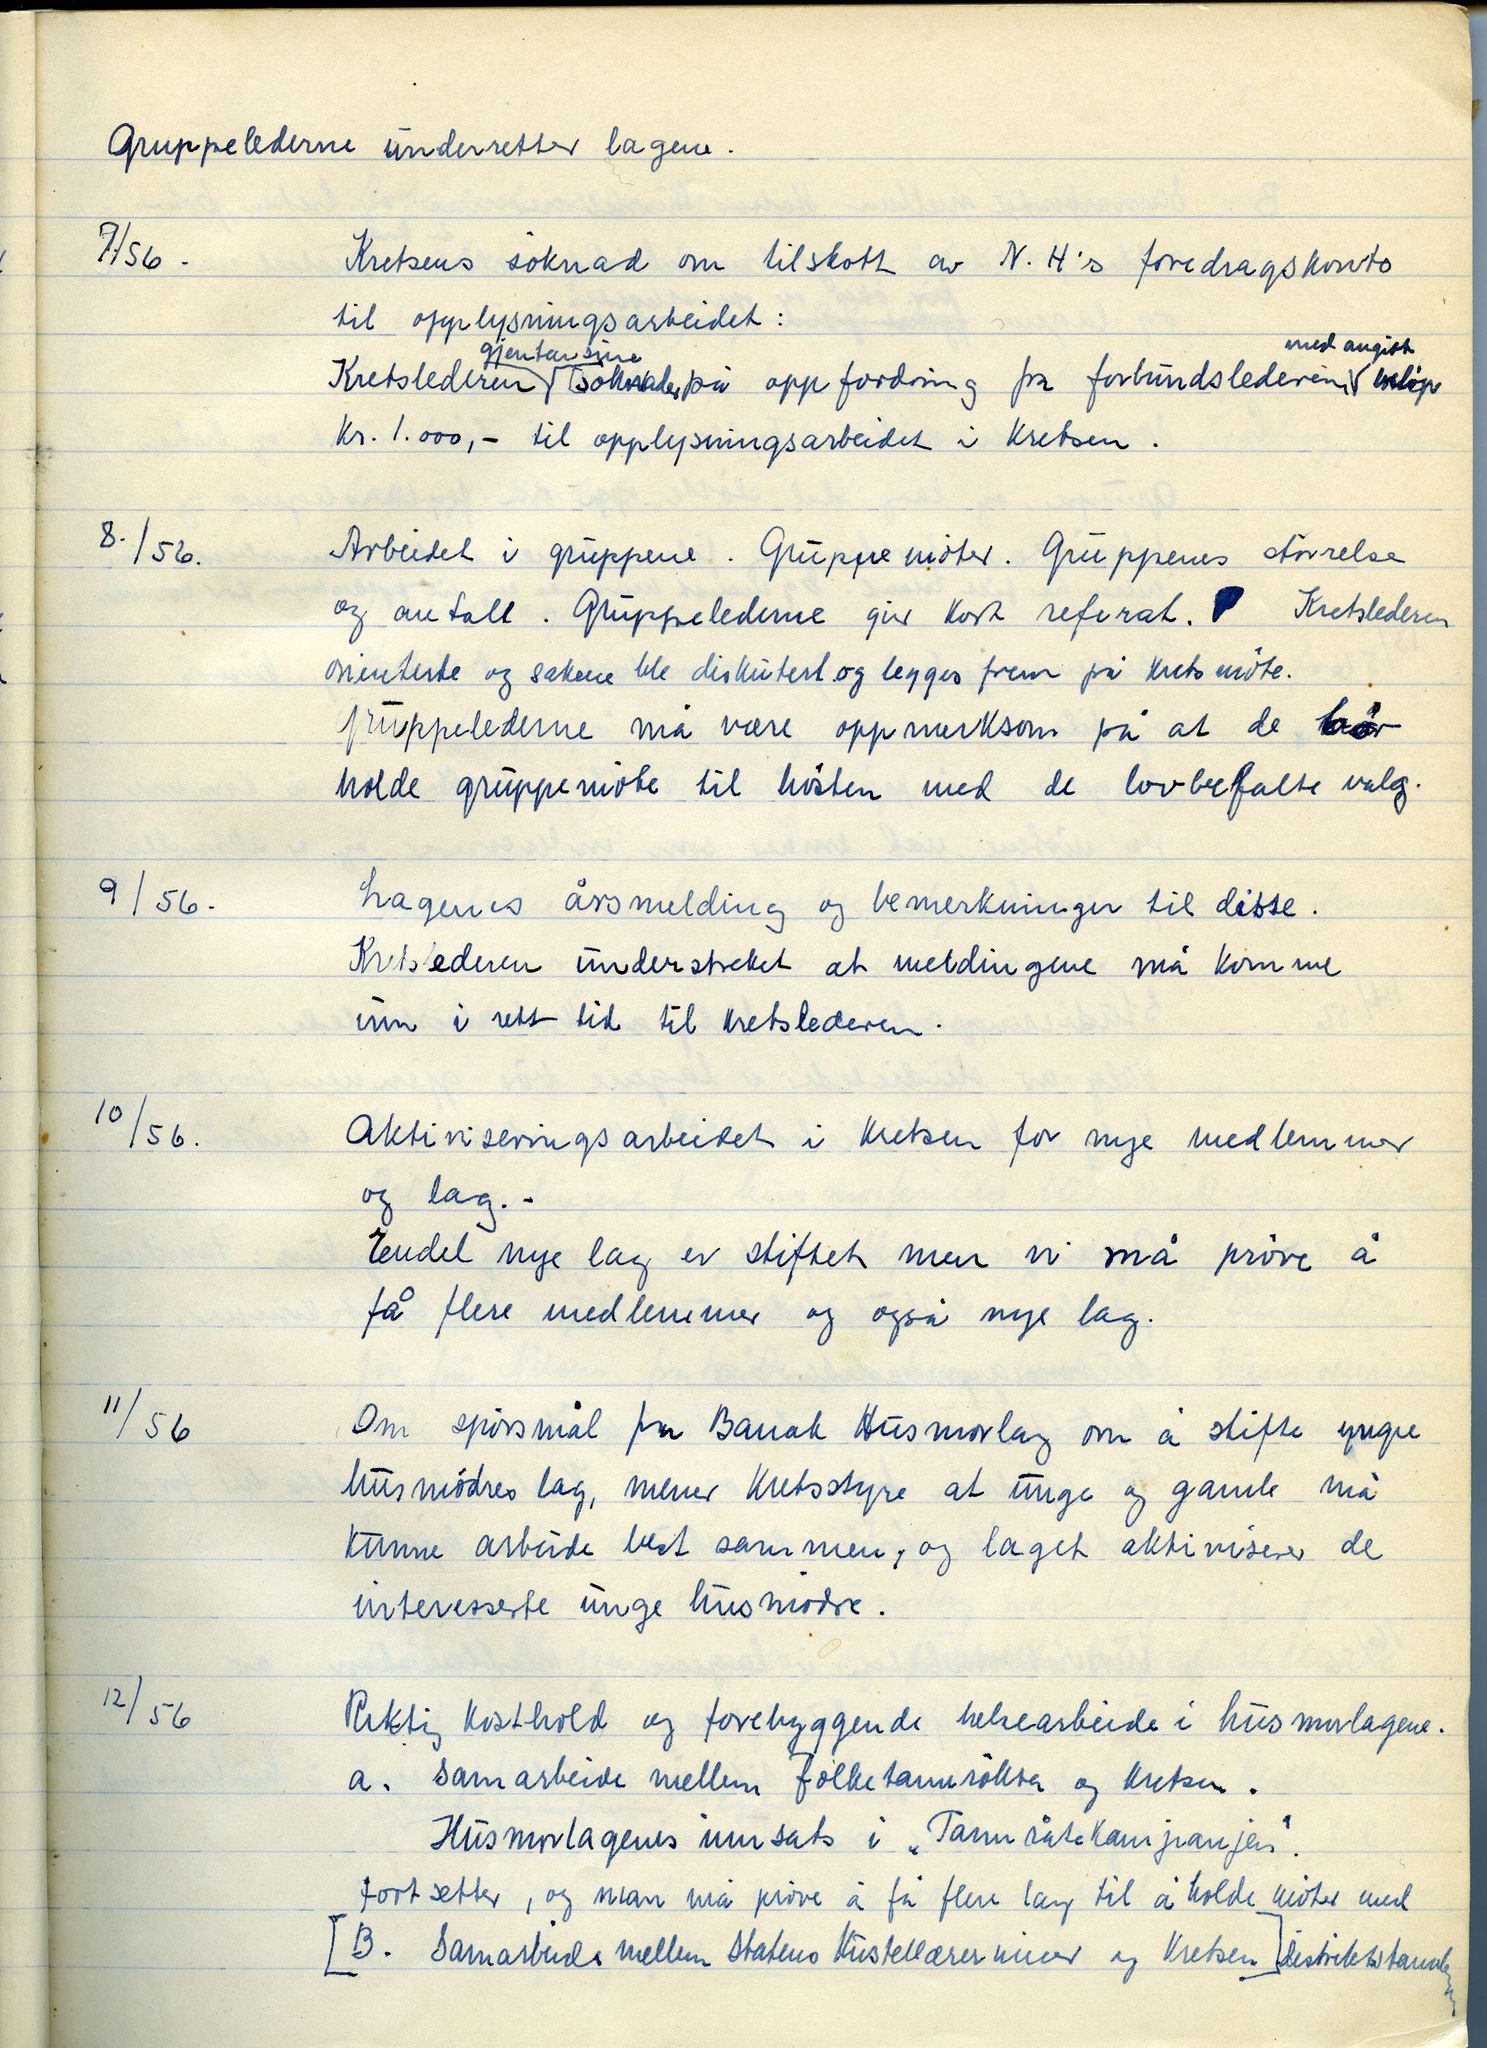 Gruppelederne underretter lagene.
7/56. Kretsens söknad om tilskott av N.H's foredragskonto
til opplysningsarbeidet:
gjentar sine med angitt
Kretslederen söknader på oppfordring fra forbundslederen, beløp
Kr. 1.000,- til opplysningsarbeidet i Kretsen.
8./56. Arbeidet i gruppene. Gruppemöter. Gruppenes störrelse
og antall. Gruppelederne gir kort referat. Kretslederen
orienterte og sakene ble diskutert og legges frem på Kretsmöte.
Gruppelederne må være oppmerksom på at de bör
holde gruppemöte til hösten med de lovbefalte valg.
9/56. Lagenes årsmelding og bemerkninger til disse.
Kretslederen understreket at meldingene må komme
inn i rett tid til Kretslederen.
10/56. Aktiviseringsarbeidet i Kretsen for nye medlemmer
og lag.-
Endel nye lag er stiftet men vi må pröve å
få flere medlemmer og også nye lag.
11/56 Om spörsmål fra Banak Husmorlag om å stifte yngre
husmödres lag, mener Kretsstyre at unge og gamle må
kunne arbeide best sammen, og laget aktiviserer de
interesserte unge husmödre.
12/56 Riktig kosthold og forebyggende helsearbeide i husmorlagene.
a. Samarbeide mellem Folketannrökta og Kretsen.
Husmorlagenes innsats i „Tannråtekampanjen".
fortsetter, og man må pröve å få flere lag til å holde möter med
[B. Samarbeide mellem Statens Kustellærerinner og Kretsen] distriktstannlegen